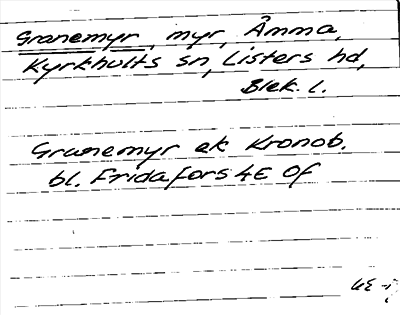 Granemyr, myr, Åmma,
Kyrkhults sn, Listers hd,
Blek. l.
Granemyr ek Kronob.
bl. Fridafors 4E Of